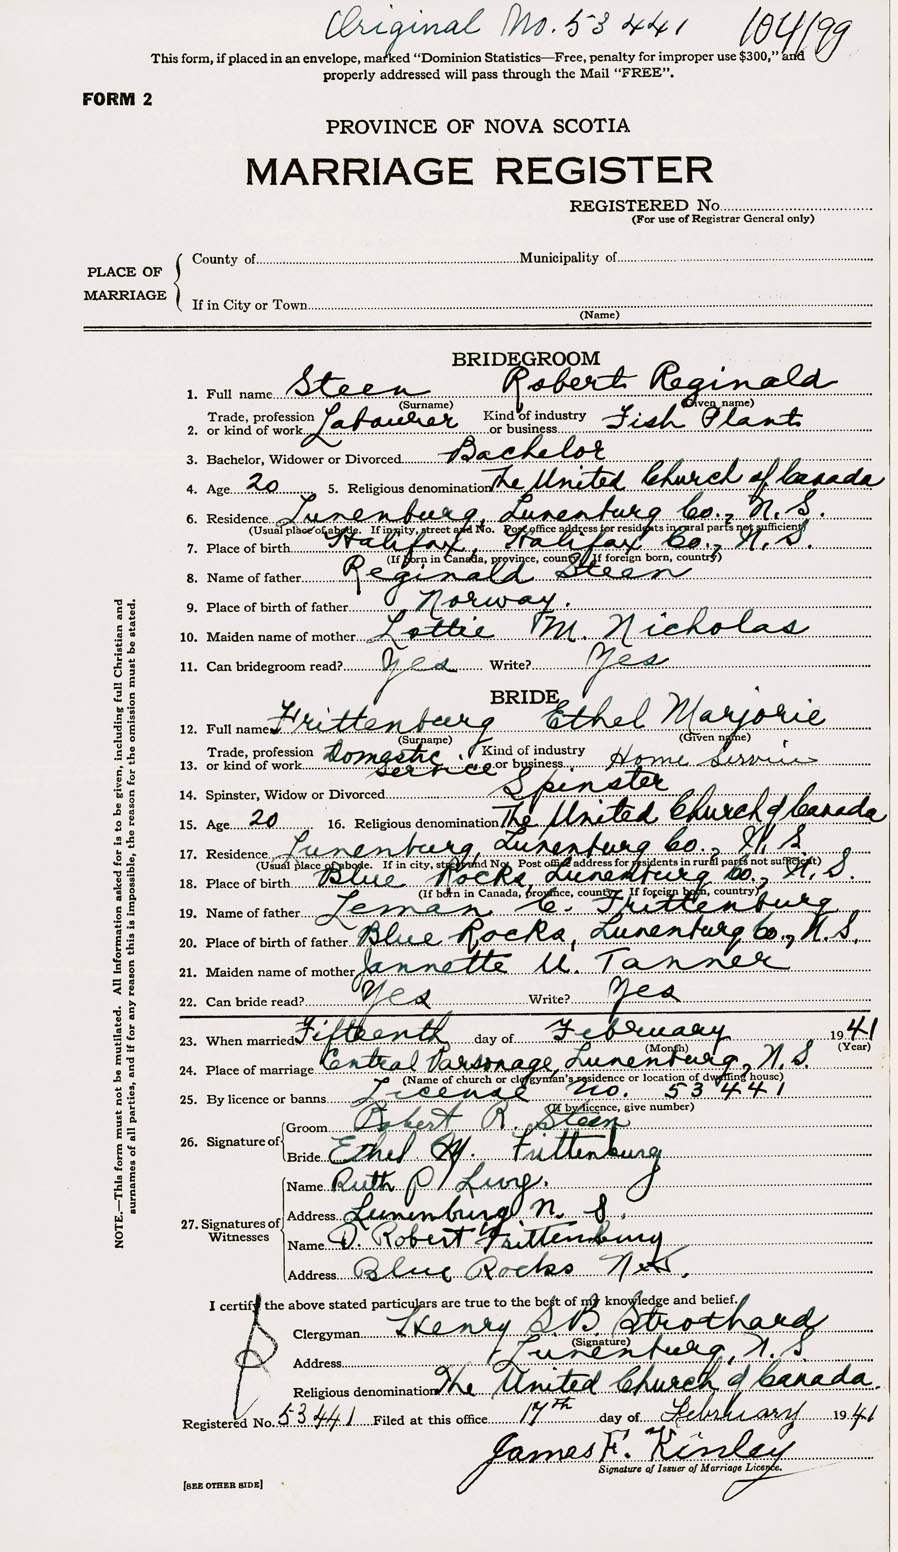 Original No. 53441 104/99
This form, if placed in an envelope, marked "Dominion Statistics—Free, penalty for improper use $300," and
properly addressed will pass through the Mail "FREE".
FORM 2
PROVINCE OF NOVA SCOTIA
MARRIAGE REGISTER
REGISTERED No.
(For use of Registrar General only)
PLACE OF MARRIAGE
County of Municipality of
If in City or Town
(Name)
BRIDEGROOM
1. Full name Steen Robert Reginald
(Surname) (Given name)
2. Trade, profession or kind of work Labourer Kind of industry or business Fish Plant
3. Bachelor, Widower or Divorced Bachelor
4. Age 20 5. Religious denomination The United Church of Canada
6. Residence Lunenburg, Lunenburg Co., N.S.
(Usual place of abode. If in city, street and No. Post office address for residents in rural parts not sufficient)
7. Place of birth Halifax, Halifax Co., N.S.
(If born in Canada, province, county. If foreign born, country)
8. Name of father Reginald Steen
9. Place of birth of father Norway.
10. Maiden name of mother Lottie M. Nicholas
11. Can bridegroom read? Yes Write? Yes
BRIDE
12. Full name Frittenburg Ethel Marjorie
(Surname) (Given name)
13. Trade, profession or kind of work Domestic service Kind of industry or business Home Service
14. Spinster, Widow or Divorced Spinster
15. Age 20 16. Religious denomination The United Church of Canada
17. Residence Lunenburg, Lunenburg Co., N.S
(Usual place of abode. If in city, street and No. Post office address for residents in rural parts not sufficient)
18. Place of birth Blue Rocks, Lunenburg Co., N.S.
(If born in Canada, province, county. If foreign born, country)
19. Name of father Leman C. Frittenburg
20. Place of birth of father Blue Rocks, Lunenburg Co., N.S.
21. Maiden name of mother Jannette U. Tanner
22. Can bride read? Yes Write? Yes
23. When married Fifteenth day of February 1941
(Month) (Year)
24. Place of marriage Central Parsonage, Lunenburg, N.S.
(Name of church or clergyman's residence or location of dwelling house)
25. By licence or banns License No. 53441
(If by licence, give number)
26. Signature of
Groom Robert R. Steen
Bride Ethel M. Frittenburg
27. Signatures of Witnesses
Name Ruth P
Address Lunenburg N. S.
Name D. Robert Frittenburg
Address Blue Rocks N.S.
I certify the above stated particulars are true to the best of my knowledge and belief.
Clergyman Henry S B Strothard
(Signature)
Address Lunenburg, N.S
Religious denomination The United Church of Canada.
Registered No. 53441 Filed at this office 17th day of February 1941
James F. Kinley
Signature of Issuer of Marriage Licence.
[SEE OTHER SIDE]
NOTE.—This form must not be mutilated. All information asked for is to be given, including full Christian and
surnames of all parties, and if for any reason this is impossible, the reason for the omission must be stated.